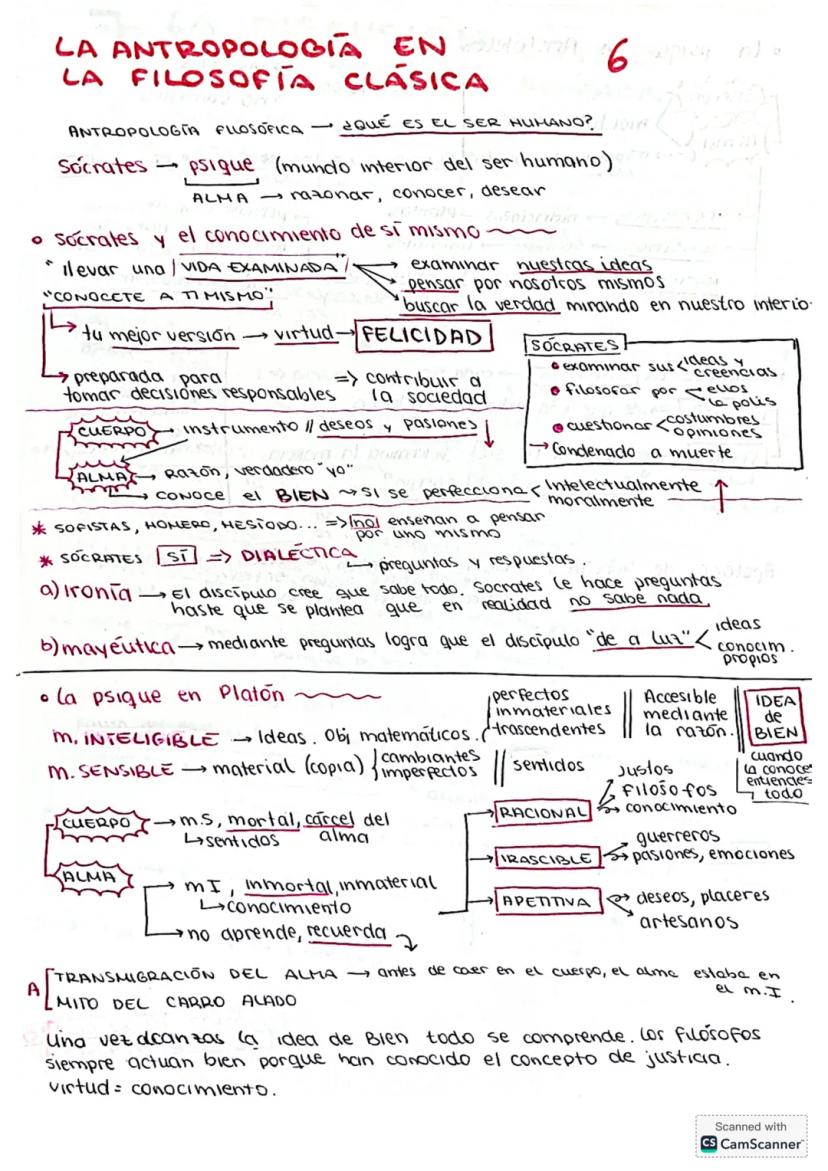 LA ANTROPOLOGÍA EN 6
LA FILOSOFÍA CLÁSICA
ANTROPOLOGÍA FILOSÓFICA → ¿QUÉ ES EL SER HUMANO?
Sócrates → psique (mundo interior del ser humano)
ALMA → razonar, conocer, desear
• Sócrates y el conocimiento de sí mismo
"llevar una VIDA EXAMINADA" → examinar nuestras ideas
pensar por nosotros mismos
buscar la verdad mirando en nuestro interio
"CONOCETE A TI MISMO"
↳ tu mejor versión → virtud → FELICIDAD
↳ preparada para
tomar decisiones responsables
=> contribuir a
la sociedad
SÓCRATES
• examinar sus < ideas y
creencias
• filosofar por < ellos
la polis
• cuestionar < costumbres
opiniones
→ Condenado a muerte
CUERPO → instrumento // deseos y pasiones ↓
ALMA → Razón, verdadero "yo"
↳ CONOCE el BIEN ~> si se perfecciona < Intelectualmente
moralmente ↑
* SOFISTAS, HOMERO, HESÍODO... => no enseñan a pensar
por uno mismo
* SÓCRATES SÍ => DIALÉCTICA
↳ preguntas y respuestas
a) Ironía → El discípulo cree que sabe todo. Socrates le hace preguntas
haste que se plantea que en realidad no sabe nada
b) mayéutica → mediante preguntas logra que el discípulo "de a luz" < ideas
conocim.
propios
• La psique en Platón
m. INTELIGIBLE → Ideas. Obj matemáticos. { perfectos
inmateriales
trascendentes || Accesible
mediante
la razón. || IDEA
de
BIEN
cuando
la conoce
entiendes
todo
m. SENSIBLE → material (copia) { cambiantes
imperfectos || sentidos
CUERPO → m.S, mortal, cárcel del
alma
↳ sentidos
ALMA
→ m I, inmortal, inmaterial
↳ conocimiento
→ no aprende, recuerda
RACIONAL → Justos
filósofos
conocimiento
IRASCIBLE → guerreros
pasiones, emociones
APETITIVA → deseos, placeres
artesanos
A [ TRANSMIGRACIÓN DEL ALMA → antes de caer en el cuerpo, el alma estaba en
el m.I.
MITO DEL CARRO ALADO
Una vez alcanzas la idea de Bien todo se comprende. Los filósofos
siempre actuan bien porque han conocido el concepto de justicia.
virtud = conocimiento.
Scanned with
CS CamScanner